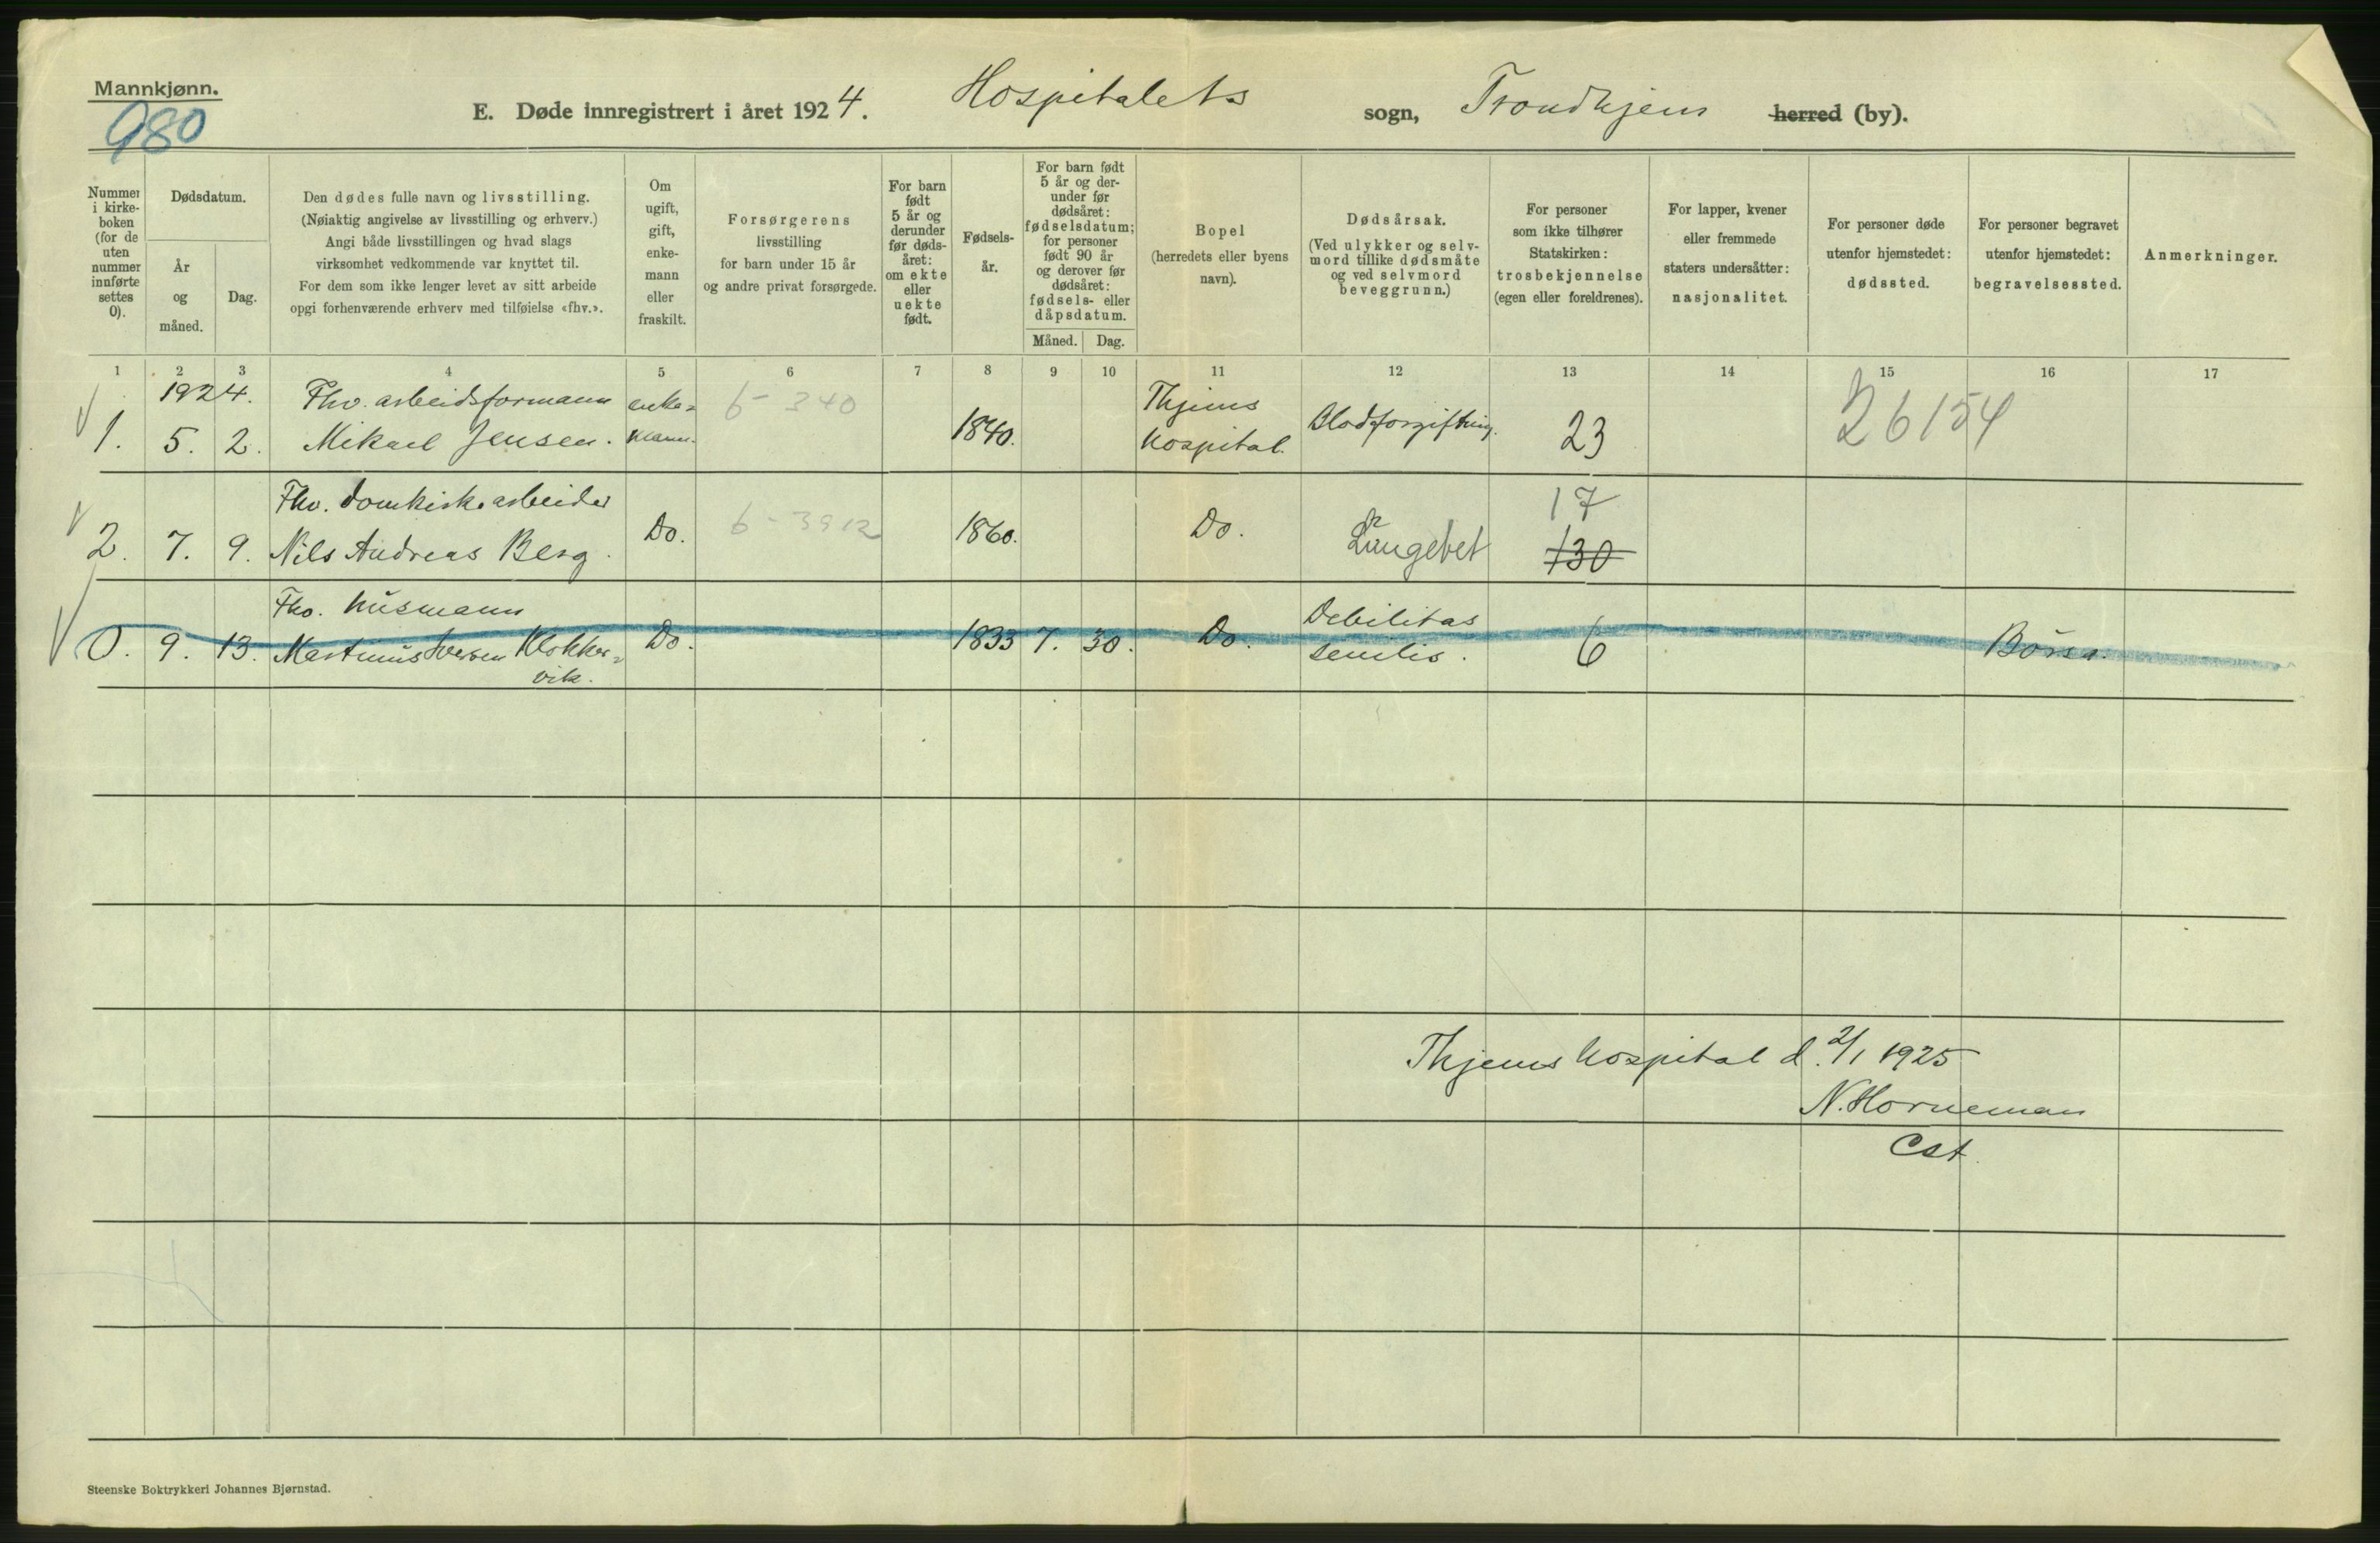 Mannkjønn.
980
E. Døde innregistrert i året 1924. Hospitalets sogn, Trondhjem herred (by).
Nummer i kirke-boken (for de uten nummer innførte settes 0).
Dødsdatum.
År og måned.
Dag.
Den dødes fulle navn og livsstilling.
(Nøiaktig angivelse av livsstilling og erhverv.)
Angi både livsstillingen og hvad slags
virksomhet vedkommende var knyttet til.
For dem som ikke lenger levet av sitt arbeide
opgi forhenværende erhverv med tilføielse «fhv.».
Om ugift, gift, enke-mann eller fraskilt.
Forsørgerens
livsstilling
for barn under 15 år
og andre privat forsørgede.
For barn født 5 år og derunder før døds-året: om ekte eller uekte født.
Fødsels-år.
For barn født 5 år og der-under før dødsåret: fødselsdatum; for personer født 90 år og derover før dødsåret: fødsels- eller dåpsdatum.
Måned. Dag.
Bopel
(herredets eller byens
navn).
Dødsårsak.
(Ved ulykker og selv-
mord tillike dødsmåte
og ved selvmord
beveggrunn.)
For personer
som ikke tilhører
Statskirken:
trosbekjennelse
(egen eller foreldrenes).
For lapper, kvener
eller fremmede
staters undersåtter:
nasjonalitet.
For personer døde
utenfor hjemstedet:
dødssted.
For personer begravet
utenfor hjemstedet:
begravelsessted.
Anmerkninger.
1 2 3 4 5 6 7 8 9 10 11 12 13 14 15 16 17
1924. Fhv. arbeidsformann enke= 6-340 Thjems 26154
1. 5. 2. Mikael Jensen. mann. 1840. Hospital. Blodforgiftning. 23
Fhv. domkirkearbeider 17
2. 7. 9. Nils Andreas Berg. Do. 6-3912 1860. Do. Lungebet 130
Fhv. husmann Debilitas
0. 9. 13. Martinus Iversen Klokker= Do. 1833 7. 30. Do. senilis. 6 Börsa.
vik.
Thjems Hospital d. 2/1 1925
N. Horneman
Cst.
Steenske Boktrykkeri Johannes Bjørnstad.